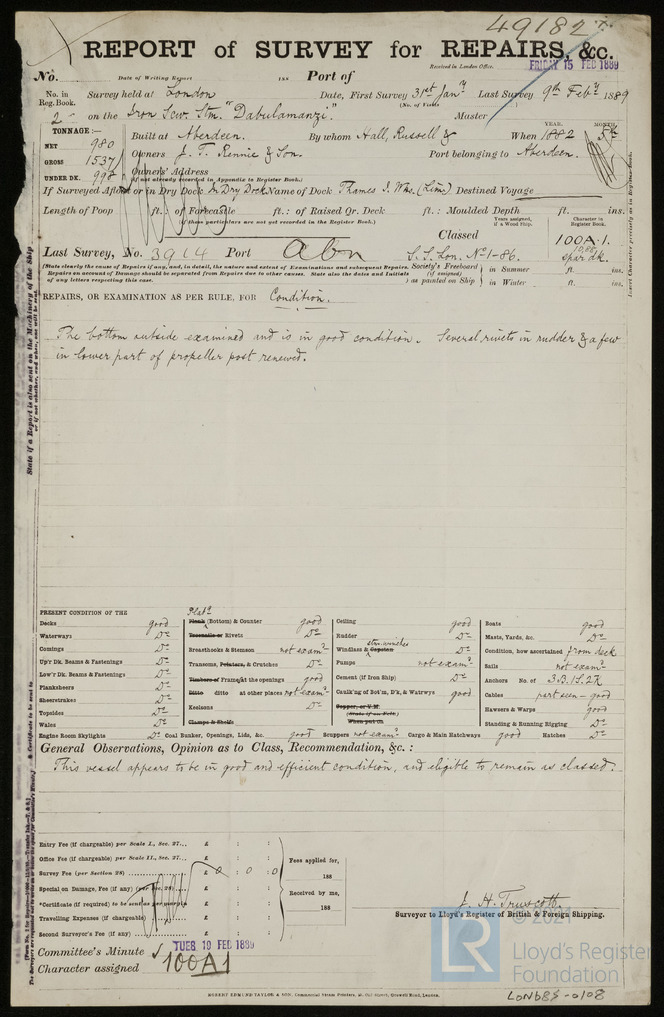 49182
REPORT of SURVEY for REPAIRS, &c.
Received in London Office.
No. Date of Writing Report 188 Port of FRIDAY 15 FEB 1889
No. in Reg. Book. Survey held at London Date, First Survey 31st Jany Last Survey 9th Feby 1889
(No. of Visits
2 on the Iron Scw. Stm. "Dabulamanzi." Master
TONNAGE:— YEAR. MONTH.
NET 980 Built at Aberdeen. By whom Hall, Russell & When 1882 5th
GROSS 1537 Owners J. T. Rennie & Son. Port belonging to Aberdeen.
UNDER DK. 998 Owners' Address
(If not already recorded in Appendix to Register Book.)
If Surveyed Afloat or in Dry Dock In Dry Dock Name of Dock Thames I. Wks. (Lim) Destined Voyage
Length of Poop ft.: of Forecastle ft.: of Raised Qr. Deck ft.: Moulded Depth ft. ins.
(If these particulars are not yet recorded in the Register Book.)
Years assigned, if a Wood Ship. Character in Register Book.
Classed 100A·1.
Last Survey, No. 3914 Port Abn S.S. Lon. No 1-86. 10,88 spar dk.
(State clearly the cause of Repairs if any, and, in detail, the nature and extent of Examinations and subsequent Repairs.
Repairs on account of Damage should be separated from Repairs due to other causes. State also the dates and Initials
of any letters respecting this case.
Society's Freeboard (if assigned) as painted on Ship in Summer ft. ins.
in Winter ft. ins.
REPAIRS, OR EXAMINATION AS PER RULE, FOR Condition.
The bottom outside examined and is in good condition. Several rivets in rudder & a few
in lower part of propeller post renewed.
PRESENT CONDITION OF THE
Decks good
Waterways Do
Comings Do
Up'r Dk. Beams & Fastenings Do
Low'r Dk. Beams & Fastenings Do
Planksheers Do
Sheerstrakes Do
Topsides Do
Wales Do
Engine Room Skylights Do
Platg
Plank (Bottom) & Counter good
Treenails or Rivets Do
Breasthooks & Stemson not examd
Transoms, Pointers, & Crutches Do
Timbers of Frame at the openings good
Ditto ditto at other places not examd
Keelsons Do
Clamps & Shelfs
Coal Bunker, Openings, Lids, &c. good
Ceiling good
Rudder Do
stm. winches
Windlass & Capstan Do
Pumps not examd
Cement (if Iron Ship) Do
Caulk'ng of Bot'm, D'k, & Watrwys good
Copper, or Y.M.
(State if on Felt.)
When put on
Scuppers not examd Cargo & Main Hatchways good
Boats good
Masts, Yards, &c. Do
Condition, how ascertained from deck
Sails not examd
Anchors No. of 3B. 1S. 2K
Cables part seen – good
Hawsers & Warps good
Standing & Running Rigging Do
Hatches Do
General Observations, Opinion as to Class, Recommendation, &c. :
This vessel appears to be in good and efficient condition, and eligible to remain as classed.
Entry Fee (if chargeable) per Scale I., Sec. 27... £ : :
Office Fee (if chargeable) per Scale II., Sec. 27... £ : :
Survey Fee (per Section 28) £ 0 : 0 : 0
Special or Damage, Fee (if any) (per Sec. 28) £ : :
*Certificate (if required) to be sent as per margin £ : :
Travelling Expenses (if chargeable) £ : :
Second Surveyor's Fee (if any) £ : :
Fees applied for,
188
Received by me,
188
J. H. Truscott.
Surveyor to Lloyd's Register of British & Foreign Shipping.
Committee's Minute TUES 19 FEB 1889
Character assigned 100A1
© 2021
LR
Lloyd's Register
Foundation
ROBERT EDMUND TAYLOR & SON, Commercial Steam Printers, Old Street, Goswell Road, London.
LON685-0108
State if a Report is also sent on the Machinery of the Ship